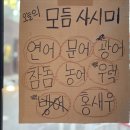 오늘의 모듬 사시미
연어 문어 광어
참돔 농어 우럭
방어 홍새우